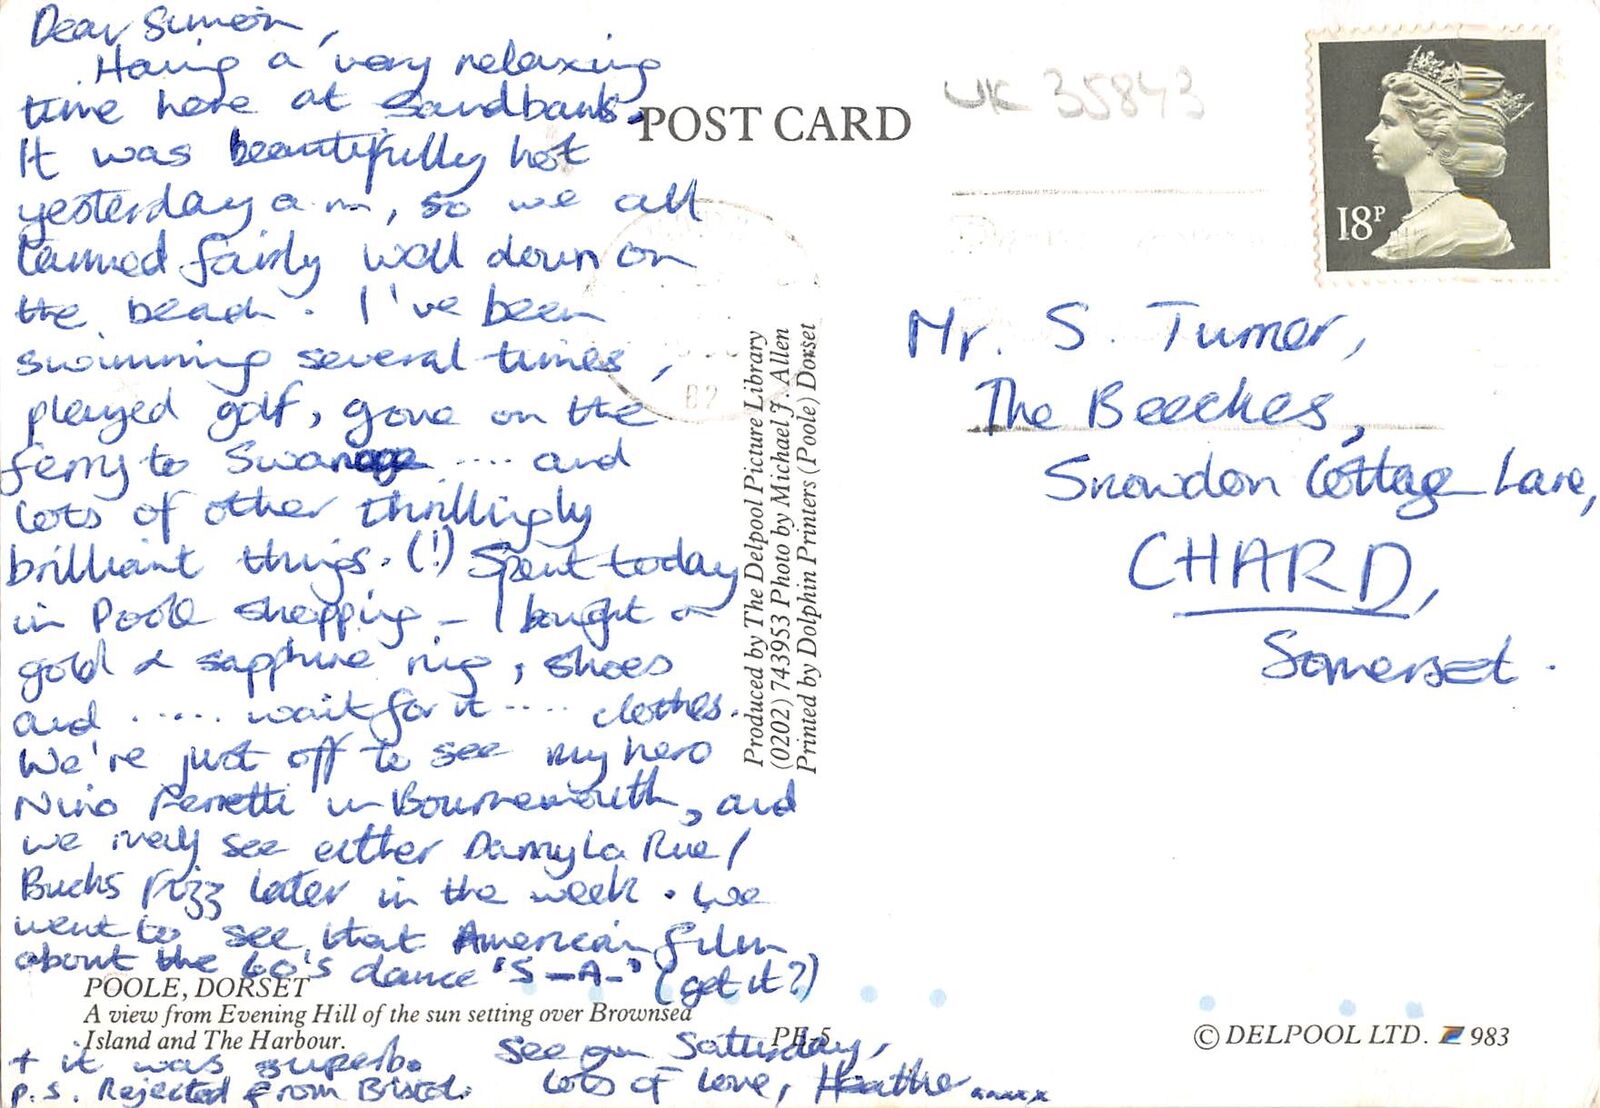 Dear Simon,
Having a very relaxing
time here at Sandbanks.
It was beautifully hot
yesterday a.m, so we all
tanned fairly well down on
the beach. I've been
swimming several times,
played golf, gone on the
ferry to Swanage .... and
lots of other thrillingly
brilliant things. (!) Spent today
in Poole shopping - I bought a
gold & sapphire ring, shoes
and ..... wait for it .... clothes.
We're just off to see my hero
Nino Ferretti in Bournemouth, and
we may see either Danny La Rue /
Bucks Fizz later in the week. We
went to see that American film
about the 60's dance "S-A-" (get it?)
+ it was superb. See you Saturday,
Lots of love, Heather xxxxx
p.s. Rejected from Bristol.
POST CARD
UK 35843
18P
Mr. S. Turner,
The Beeches,
Snowdon Cottage Lane,
CHARD,
Somerset.
Produced by The Delpool Picture Library
(0202) 743953 Photo by Michael J. Allen
Printed by Dolphin Printers (Poole) Dorset
POOLE, DORSET
A view from Evening Hill of the sun setting over Brownsea
Island and The Harbour.
© DELPOOL LTD. 983